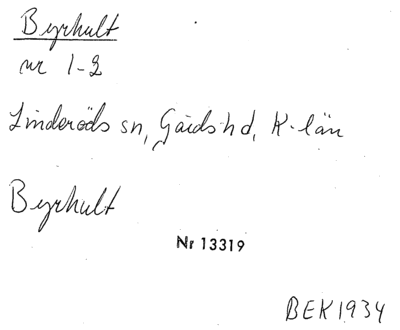 Byrhult
nr 1-2
Linderöds sn, Gärds hd, K-län
Byrhult
Nr 13319
BEK 1934